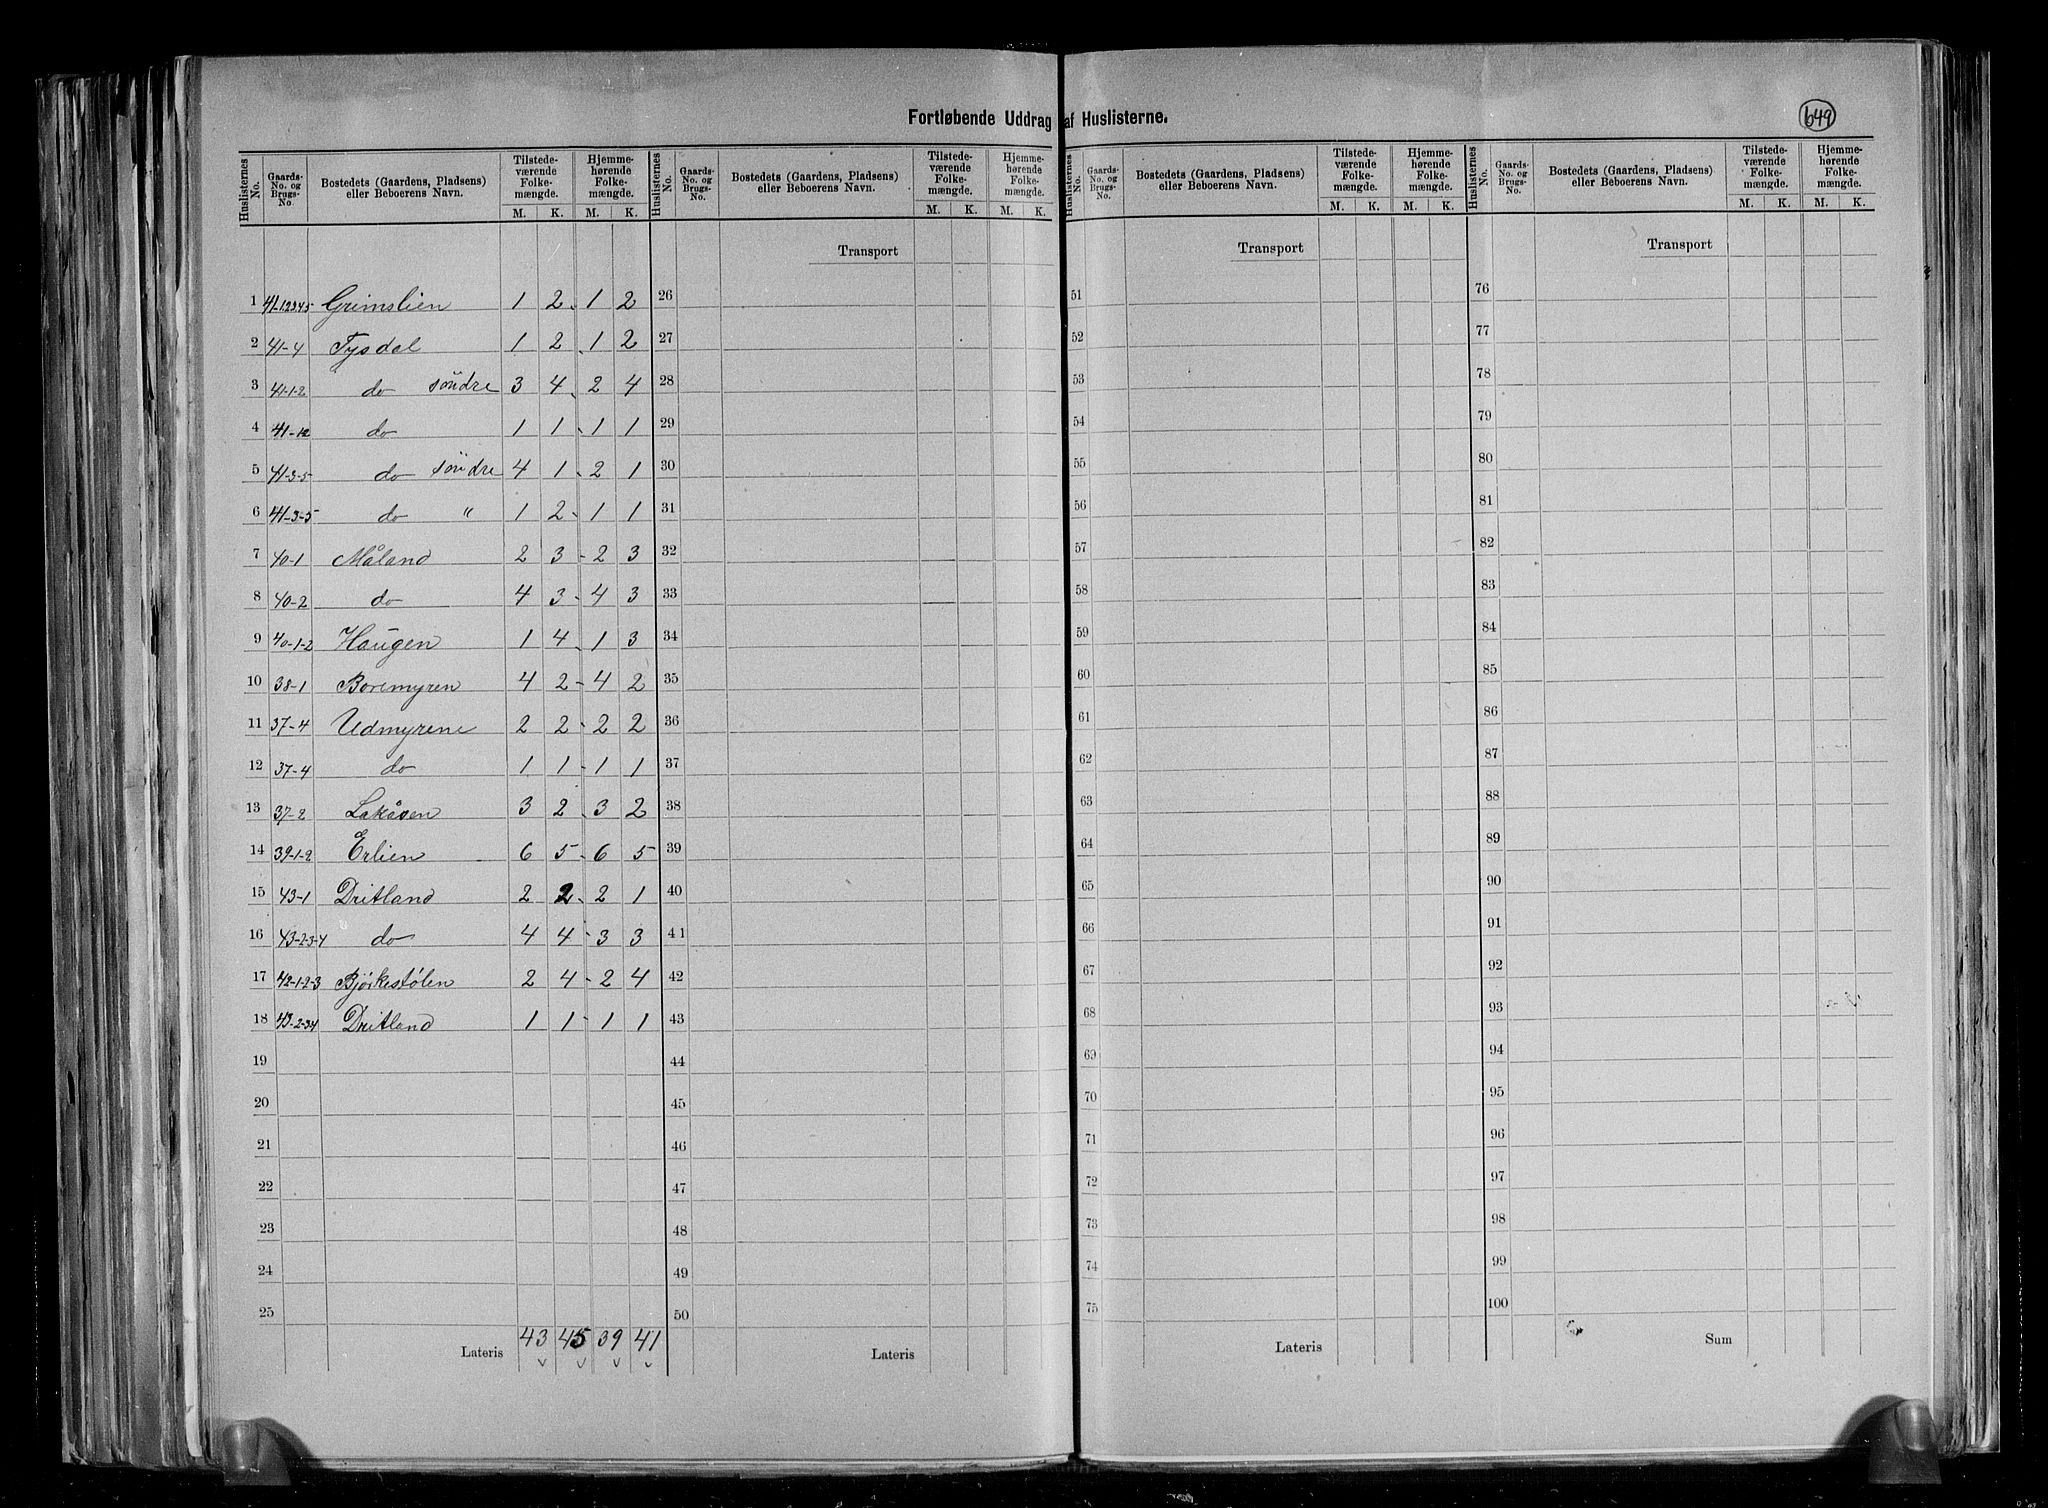 Fortløbende Uddrag af Huslisterne.
649
Huslisternes No. Gaards-No. og Brugs-No. Bostedets (Gaardens, Pladsens) eller Beboerens Navn. Tilstedeværende Folkemængde. M. K. Hjemmehørende Folkemængde. M. K.
Huslisternes No. Gaards-No. og Brugs-No. Bostedets (Gaardens, Pladsens) eller Beboerens Navn. Tilstedeværende Folkemængde. M. K. Hjemmehørende Folkemængde. M. K.
Huslisternes No. Gaards-No. og Brugs-No. Bostedets (Gaardens, Pladsens) eller Beboerens Navn. Tilstedeværende Folkemængde. M. K. Hjemmehørende Folkemængde. M. K.
Huslisternes No. Gaards-No. og Brugs-No. Bostedets (Gaardens, Pladsens) eller Beboerens Navn. Tilstedeværende Folkemængde. M. K. Hjemmehørende Folkemængde. M. K.
Transport Transport Transport
1 41-1.2.3.4.5 Grimslien 1 2 - 1 2 26 51 76
2 41-4 Tysdal 1 2 - 1 2 27 52 77
3 41-1-2 do söndre 3 4 - 2 4 28 53 78
4 41-12 do 1 1 - 1 1 29 54 79
5 41-3-5 do söndre 4 1 - 2 1 30 55 80
6 41-3-5 do " 1 2 - 1 1 31 56 81
7 40-1 Måland 2 3 - 2 3 32 57 82
8 40-2 do 4 3 - 4 3 33 58 83
9 40-1-2 Haugen 1 4 - 1 3 34 59 84
10 38-1 Boremyren 4 2 - 4 2 35 60 85
11 37-4 Udmyrene 2 2 - 2 2 36 61 86
12 37-4 do 1 1 - 1 1 37 62 87
13 37-2 Lakåsen 3 2 - 3 2 38 63 88
14 39-1-2 Erlien 6 5 - 6 5 39 64 89
15 43-1 Dritland 2 2 - 2 1 40 65 90
16 43-2-3-4 do 4 4 - 3 3 41 66 91
17 42-1-2-3 Bjørkestølen 2 4 - 2 4 42 67 92
18 43-2-34 Dritland 1 1 - 1 1 43 68 93
19 44 69 94
20 45 70 95
21 46 71 96
22 47 72 97
23 48 73 98
24 49 74 99
25 50 75 100
Lateris 43 45 39 41 Lateris Lateris Sum